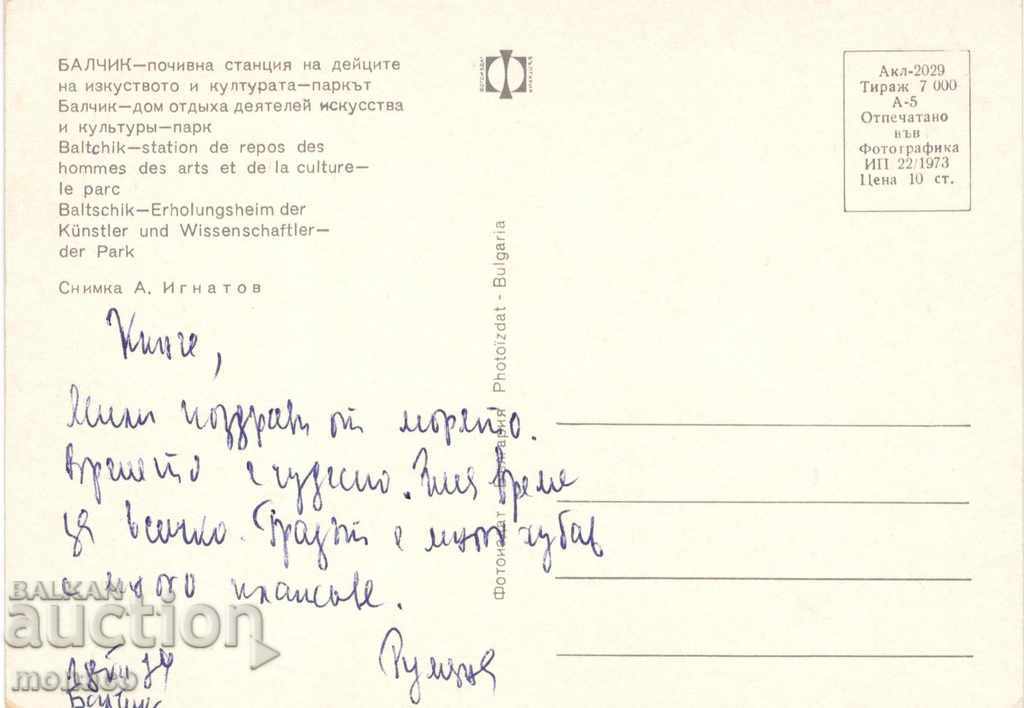 БАЛЧИК—почивна станция на дейците
на изкуството и културата—паркът
Балчик—дом отдыха деятелей искусства
и культуры—парк
Baltchik—station de repos des
hommes des arts et de la culture—
le parc
Baltschik—Erholungsheim der
Künstler und Wissenschaftler—
der Park
Снимка А. Игнатов
ФОТОИЗДАТ БЪЛГАРИЯ
Акл-2029
Тираж 7 000
А-5
Отпечатано
във
Фотографика
ИП 22/1973
Цена 10 ст.
Фотоиздат България Photoïzdat - Bulgaria
Мили поздрави от морето.
Времето е чудесно. Има време
за всичко. Градът е много хубав
с много плажове.
Румяна
Балчик
BALKAN
auction